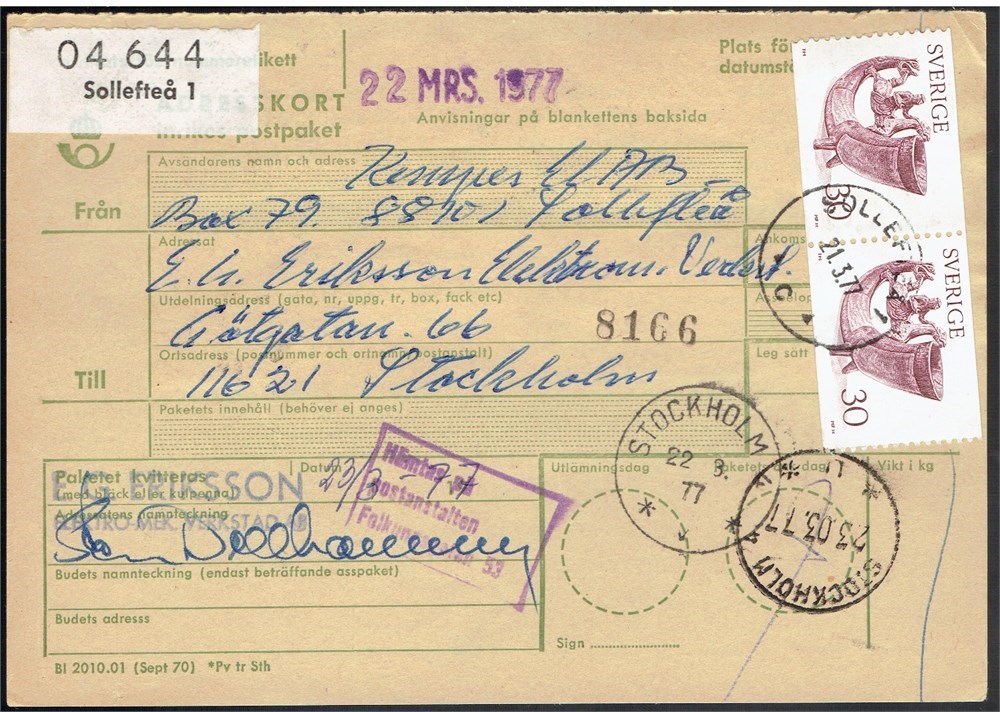 04 644
Sollefteå 1
etikett
22 MRS. 1977
Plats för
datumstä
ADRESSKORT
Inrikes postpaket
Anvisningar på blankettens baksida
SVERIGE
30
Från
Avsändarens namn och adress
Kempes El AB
Box 79. 88101 Sollefteå
SOLLEFTEÅ 1
21.3.77
C
SVERIGE
30
Till
Adressat
E. G. Eriksson Elektrom. Verkst.
Ankoms
Utdelningsadress (gata, nr, uppg, tr, box, fack etc)
Götgatan 66
8166
Ortsadress (postnummer och ortnamn postanstalt)
11621 Stockholm
Leg sätt
Paketets innehåll (behöver ej anges)
STOCKHOLM 4
22 3.
77
Paketet kvitteras
(med bläck eller kulpenna)
Datum
23/3 -77
E G ERIKSSON
ELEKTRO-MEK. VERKSTAD AB
Adressatens namnteckning
Hämtas på
postanstalten
Folkungagatan 53
Utlämningsdag
Paketets dag
Vikt i kg
STOCKHOLM 4
23.03.77
Budets namnteckning (endast beträffande asspaket)
Budets adress
Sign
BI 2010.01 (Sept 70) *Pv tr Sth